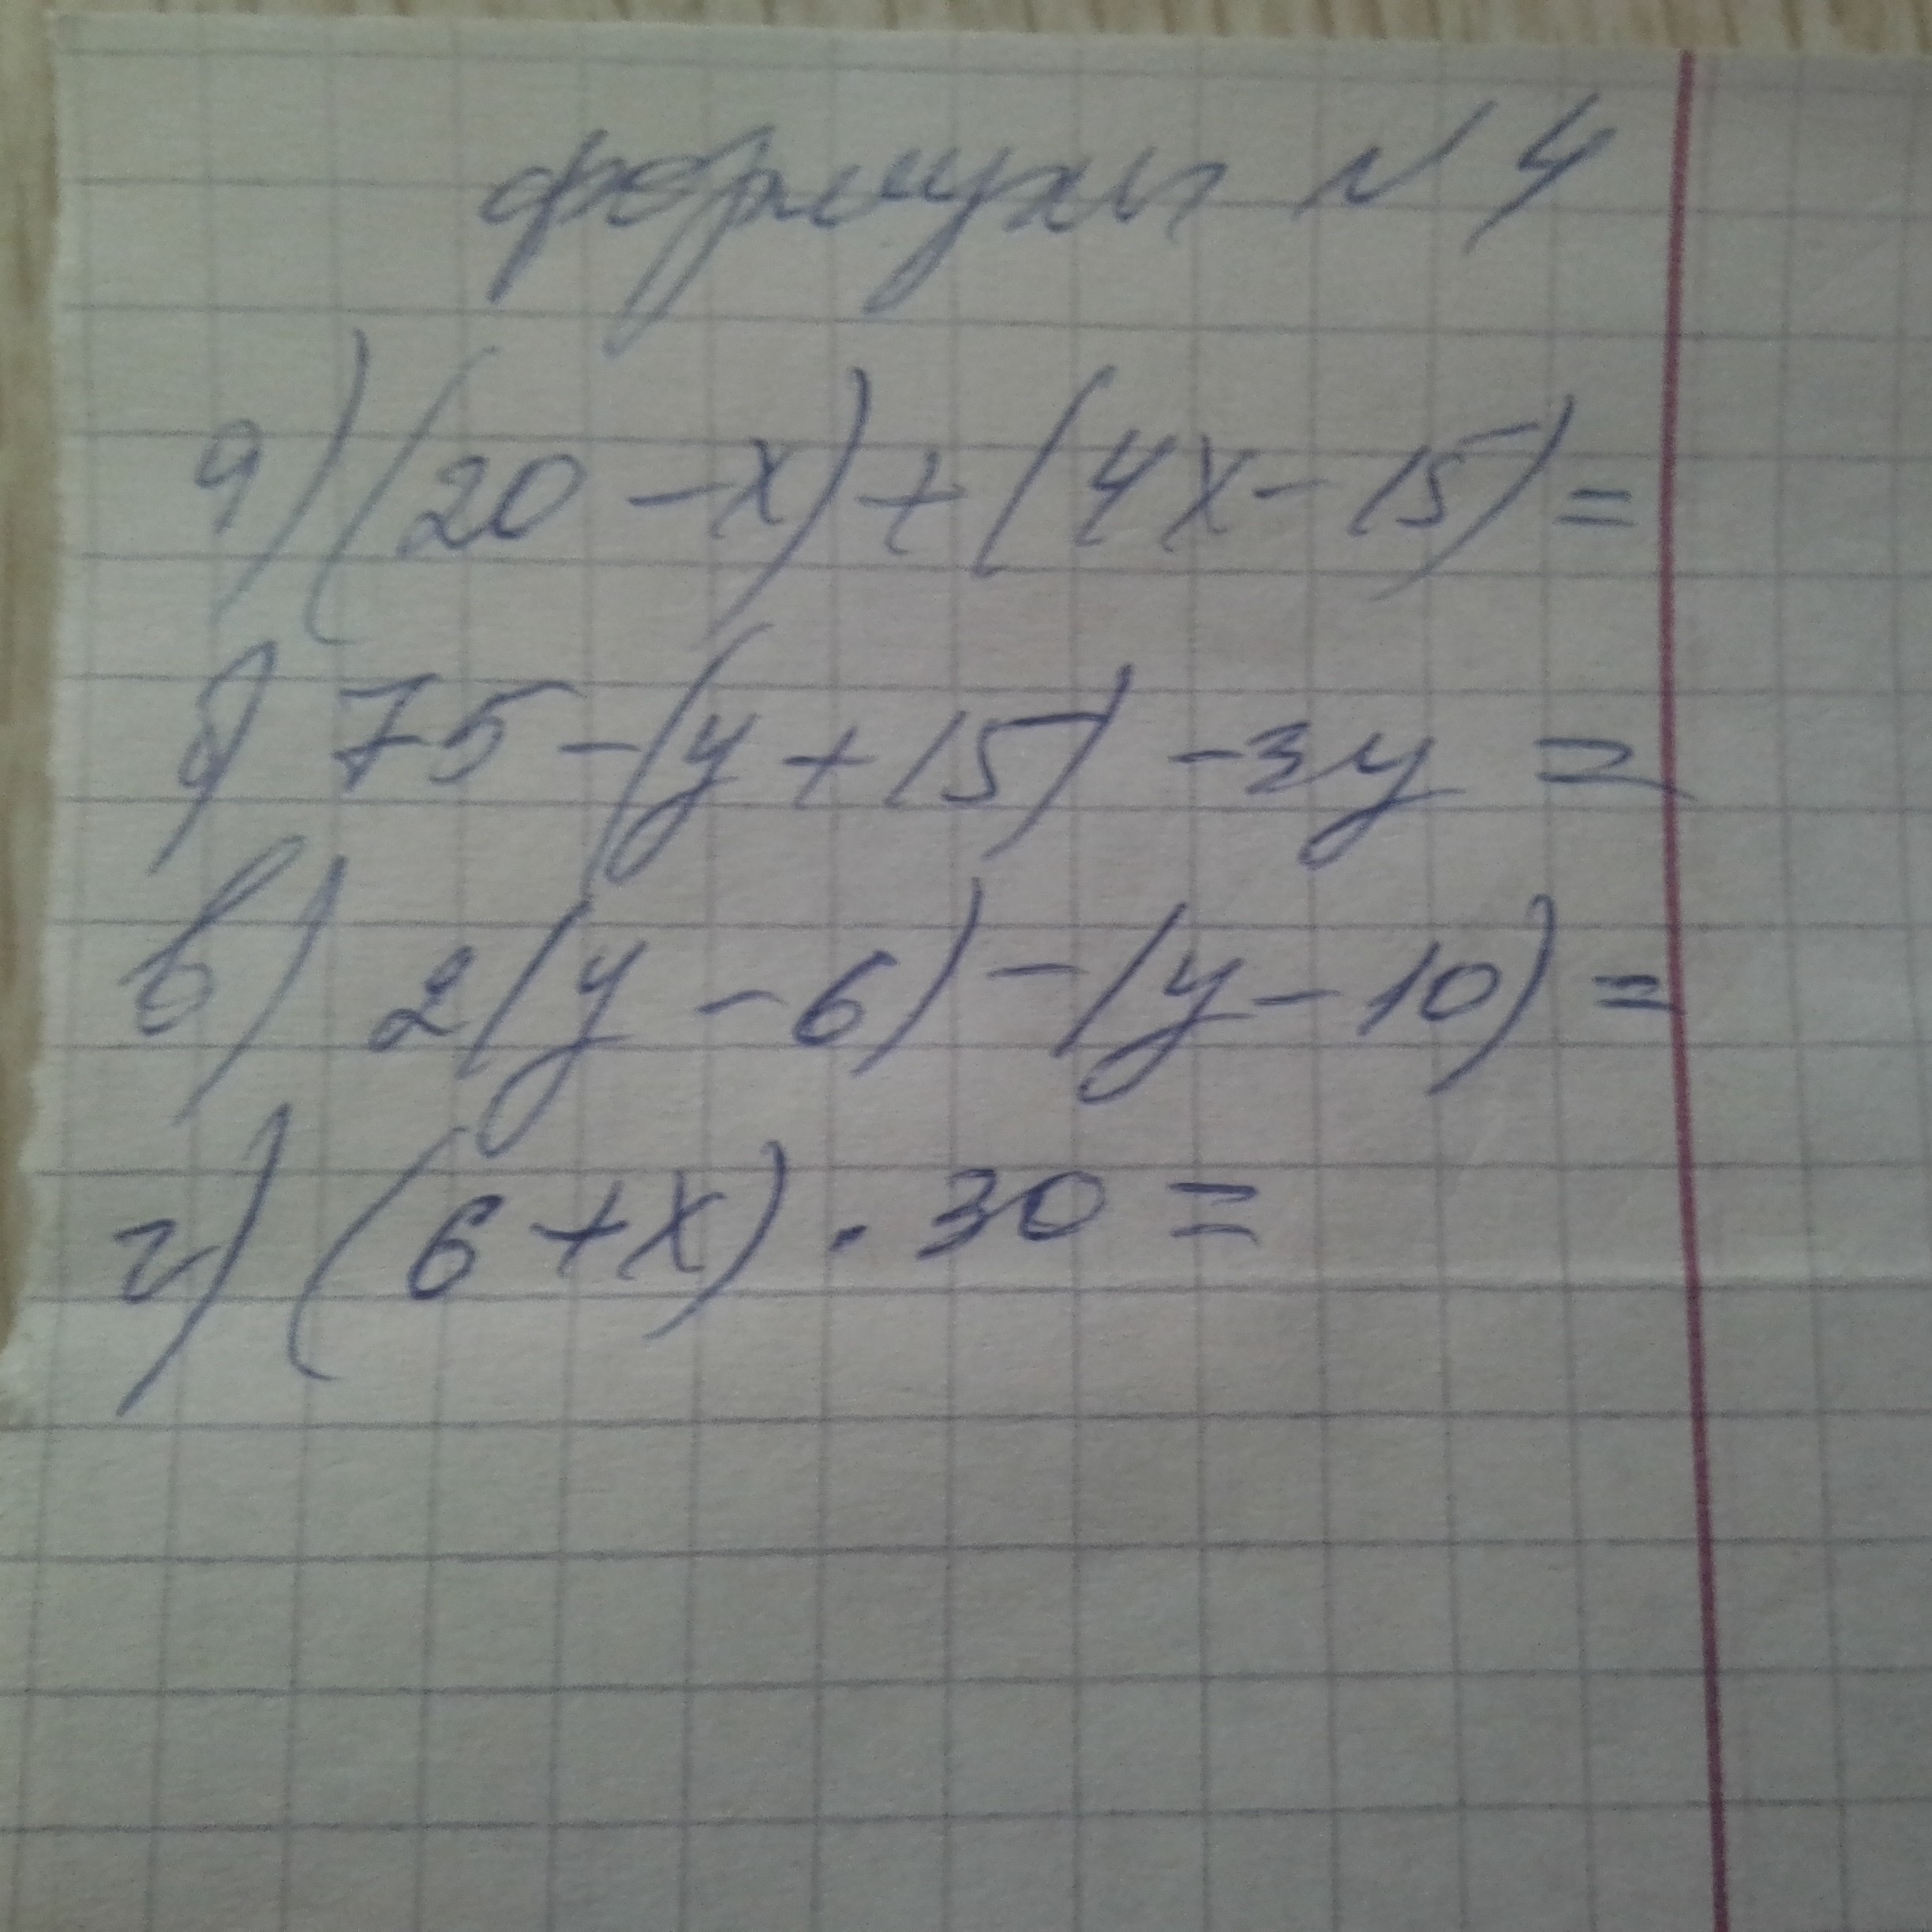 формулы № 4
а) (20 - x) + (4x - 15) =
б) 75 - (y + 15) - 3y =
в) 2(y - 6) - (y - 10) =
г) (6 + x) · 30 =